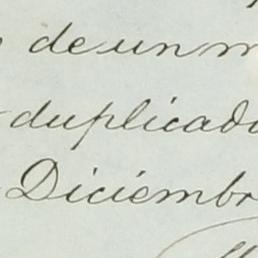 de un m
duplicado
Diciembr